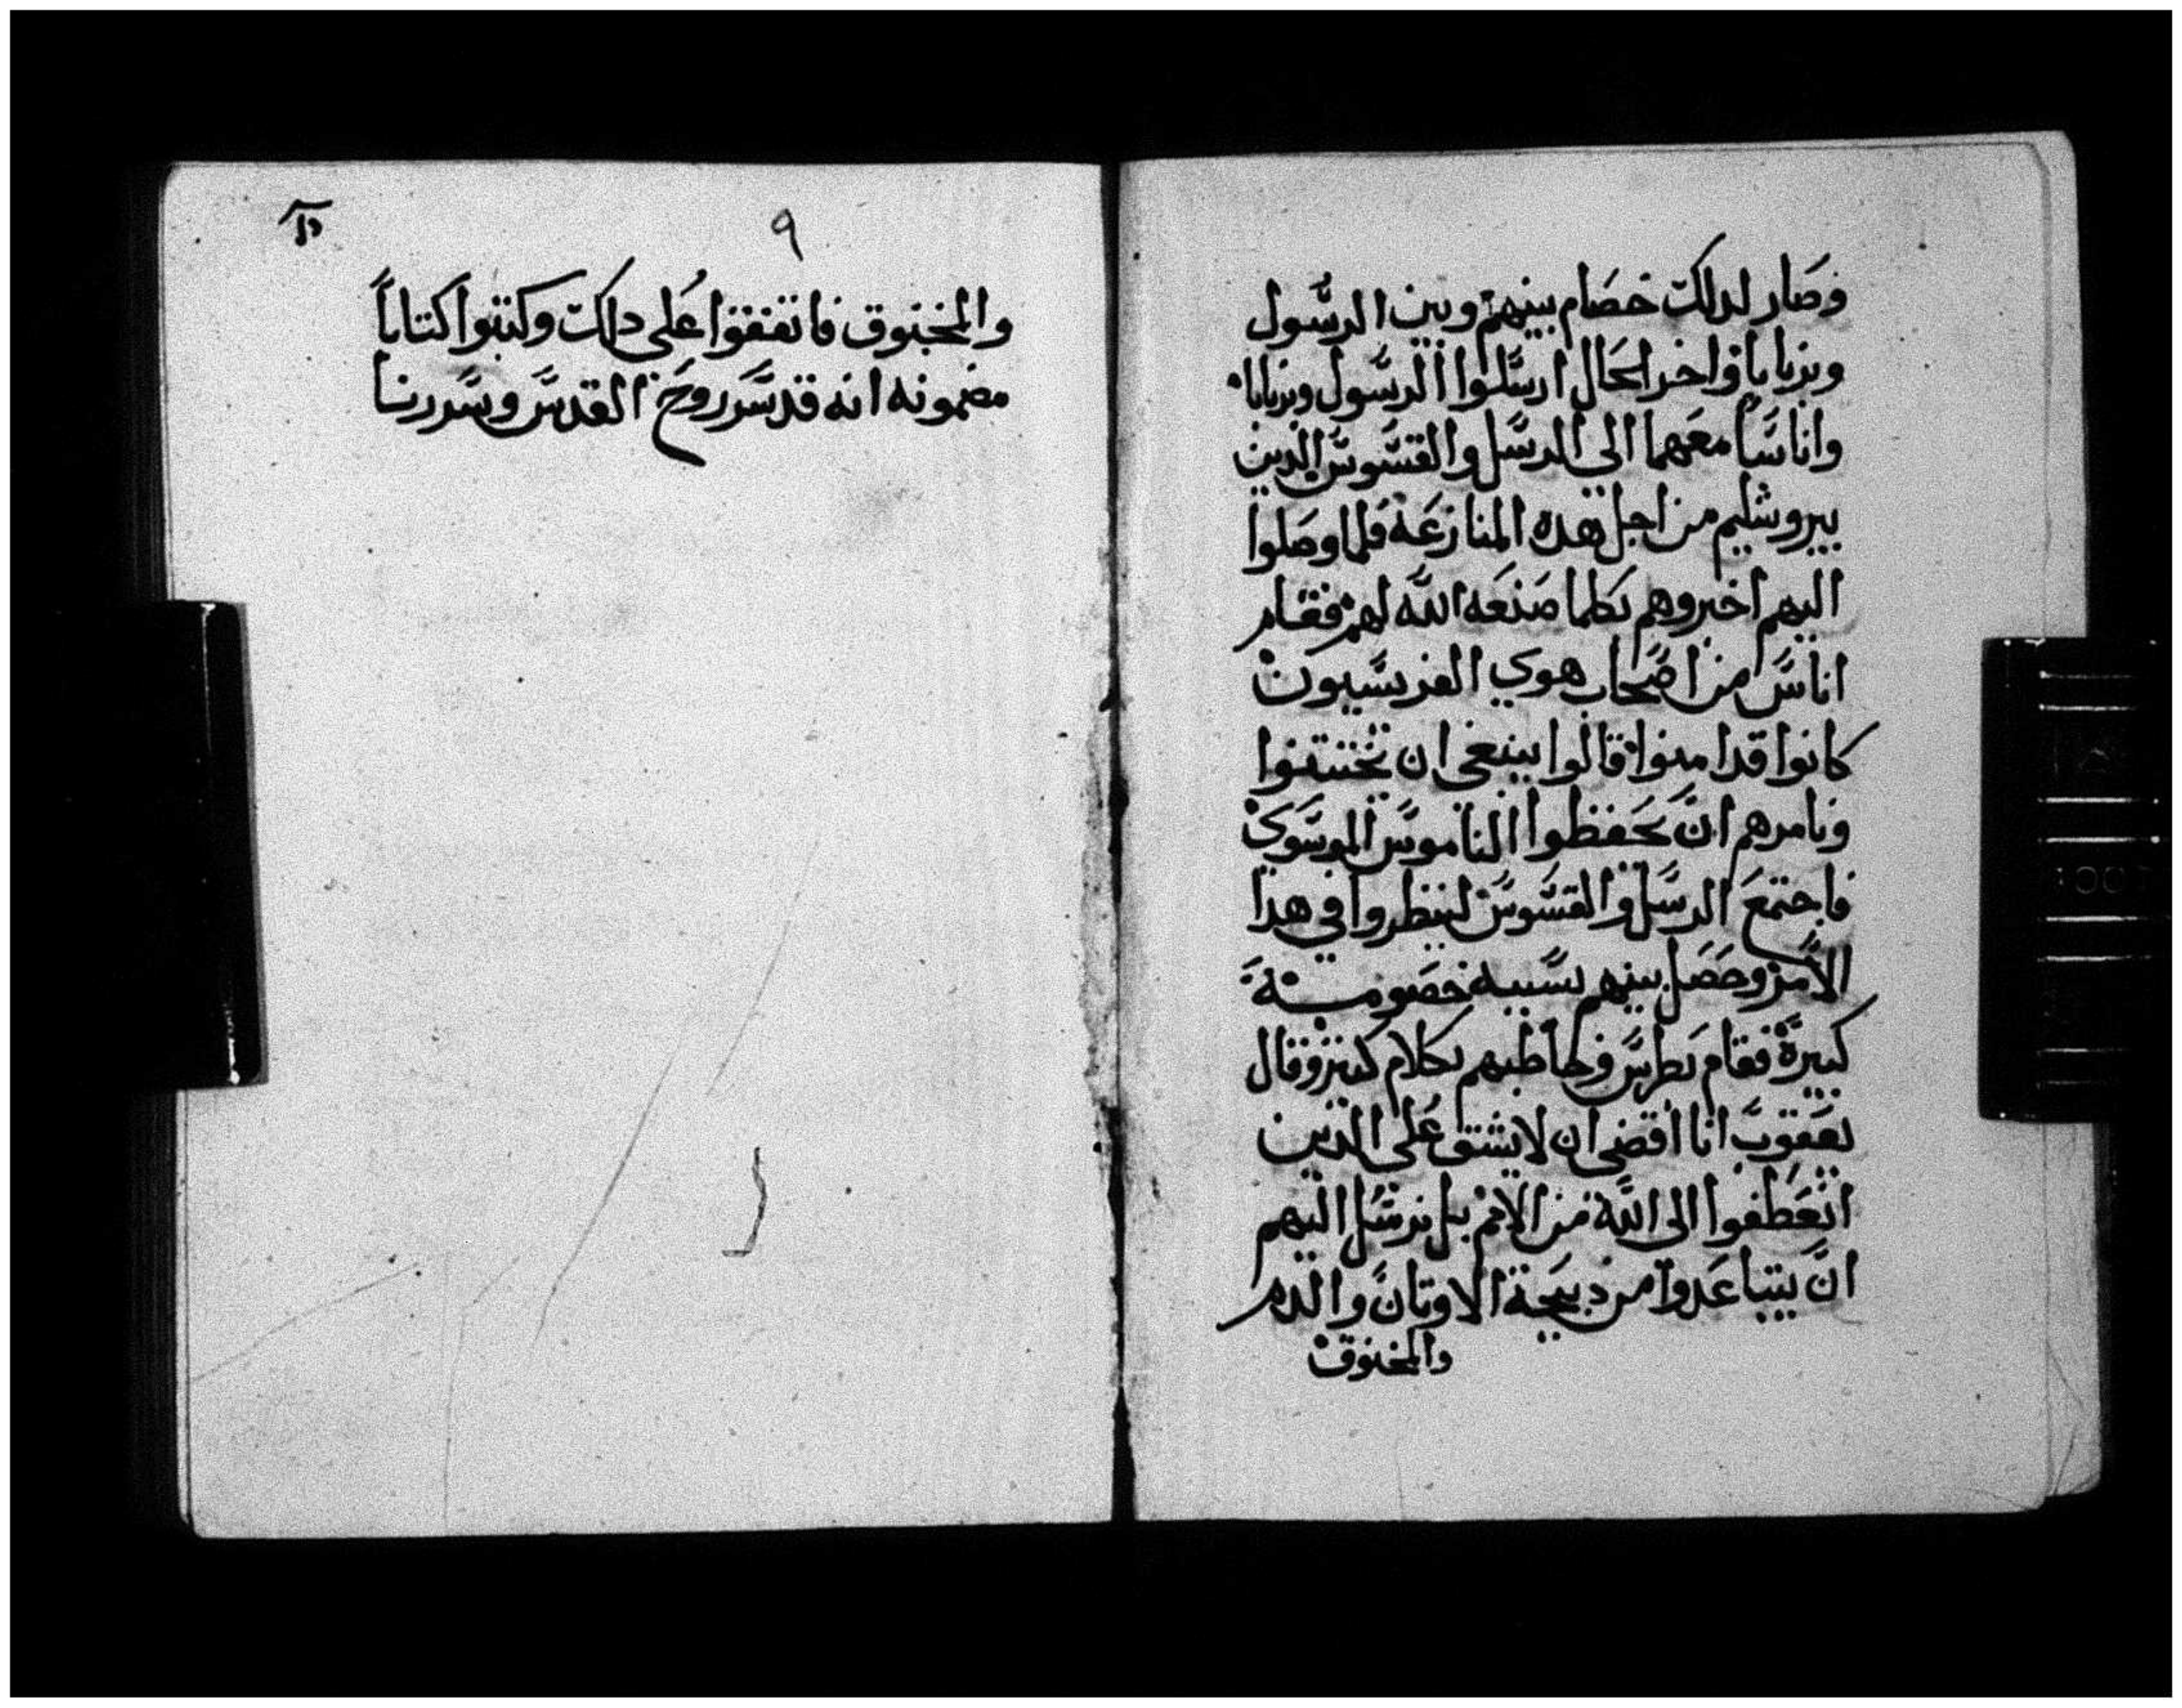 وصار لدلك خصام بينهم وبين الرسول
وبرنابا واخر الحال ارسلوا الرسول وبرنابا
واناسًا معهما الي الرسل والقسوس الدين
بيروشليم من اجل هده المنازعة فلما وصلوا
اليهم اخبروهم بكلما صنعه الله لهم فقام
اناس من اصحاب هوي الفريسيون
كانوا قد امنوا قالوا ينبغي ان تختتنوا
ونامرهم ان يحفظوا الناموس الموسوي
فاجتمع الرسل والقسوس لينظروا في هدا
الامر وحصل بينهم بسببه خصومة
كبيرة فقام بطرس وخاطبهم بكلام كثير وقال
يعقوب انا اقضي ان لا يشق علي الدين
انعطفوا الي الله من الامم بل نرسل اليهم
ان يتباعدوا من دبيحة الاوتان والدم
والمخنوق
٩
والمخنوق فاتفقوا علي دلك وكتبوا كتاباً
مضمونه انه قد سر روح القدس وسررنا